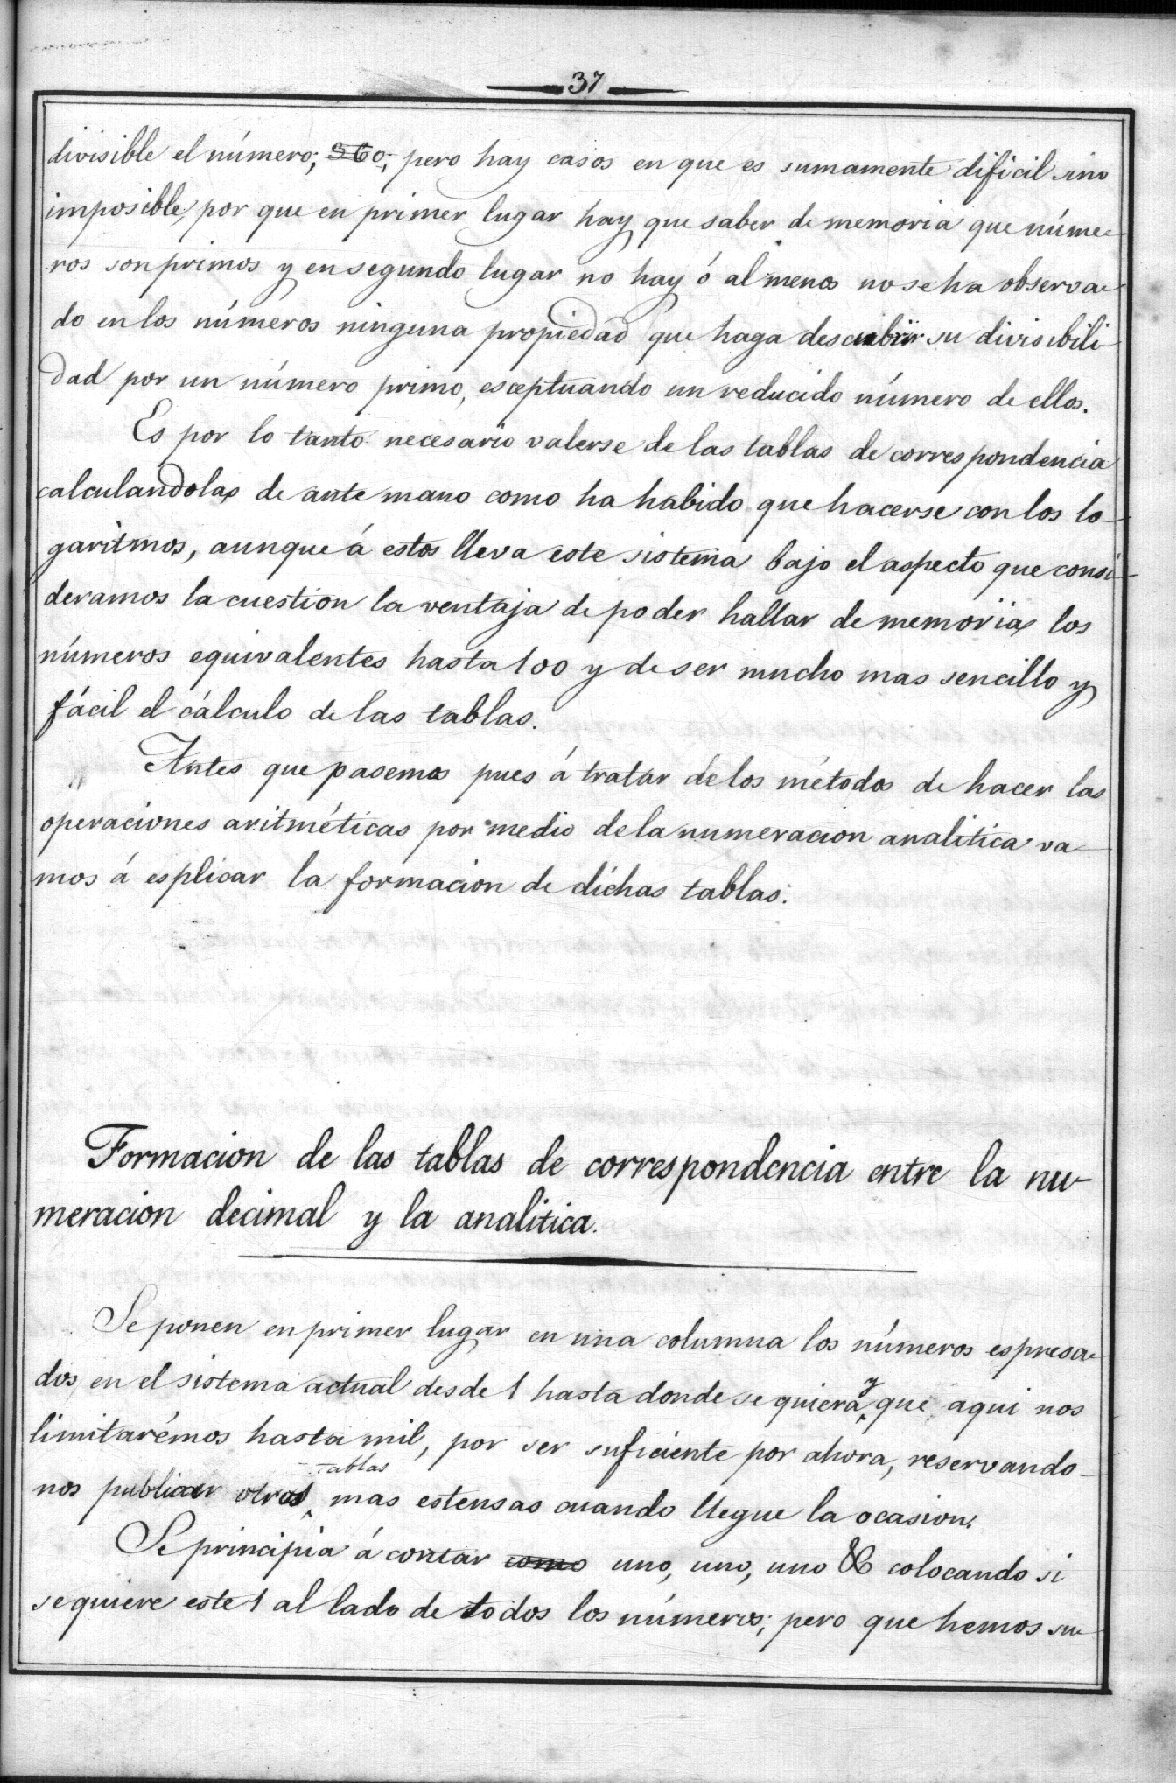 37
divisible el número; 560; pero hay casos en que es sumamente dificil sino
imposible, por que en primer lugar hay que saber de memoria que núme-
ros son primos y en segundo lugar no hay ó al menos no se ha observa-
do en los números ninguna propiedad que haga descubrir su divisibili
dad por un número primo, esceptuando un reducido número de ellos.
Es por lo tanto necesario valerse de las tablas de correspondencia
calculandolas de ante mano como ha habido que hacerse con los lo-
garitmos, aunque á estos lleva este sistema bajo el aspecto que consi-
deramos la cuestion la ventaja de poder hallar de memoria los
números equivalentes hasta 100 y de ser mucho mas sencillo y
fácil el cálculo de las tablas.
Antes que pasemos pues á tratar de los métodos de hacer las
operaciones aritméticas por medio de la numeracion analitica va-
mos á esplicar la formacion de dichas tablas.
Formacion de las tablas de correspondencia entre la nu-
meracion decimal y la analitica.
Se ponen en primer lugar en una columna los números espresa-
dos en el sistema actual desde 1 hasta donde se quiera y que aqui nos
limitarémos hasta mil, por ser suficiente por ahora, reservando-
nos publicar otras tablas mas estensas cuando llegue la ocasion.
Se principia á contar como uno, uno, uno &c colocando si
se quiere este 1 al lado de todos los números; pero que hemos su-